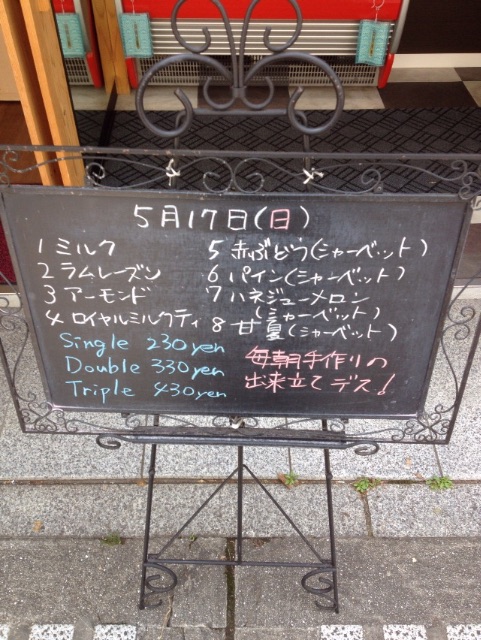 5月17日(日)
1 ミルク
2 ラムレーズン
3 アーモンド
4 ロイヤルミルクティ
5 赤ぶどう(シャーベット)
6 パイン(シャーベット)
7 ハネジューメロン
(シャーベット)
8 甘夏(シャーベット)
Single 230yen
Double 330yen
Triple 430yen
毎朝手作りの
出来立てデス!